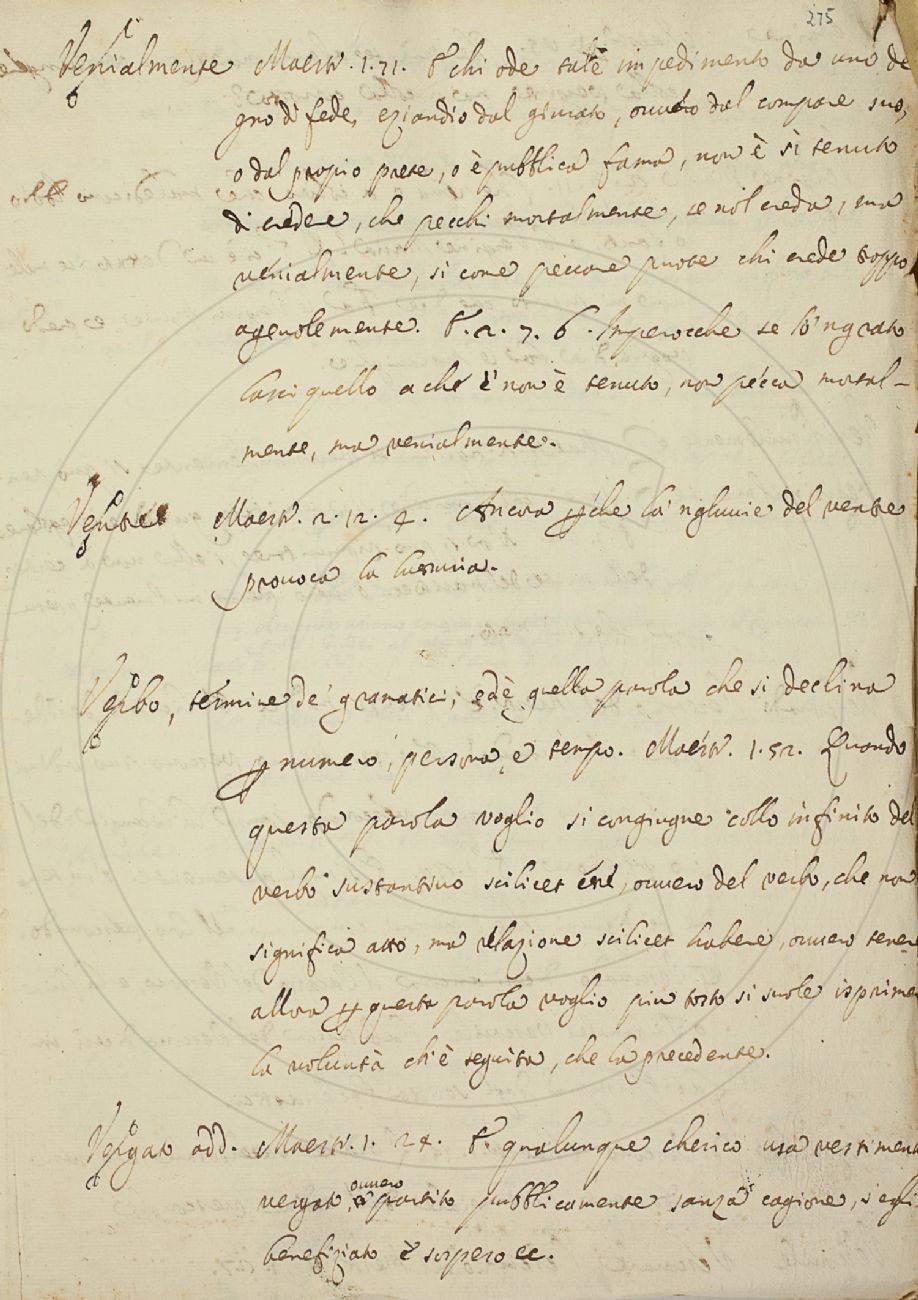 275
Venialmente Maestr. 1. 71. E chi ode tale impedimento da uno de
gno di fede, eziandio dal giurato, ovvero dal compare suo,
o dal propio prete, o è pubblica fama, non è sì tenuto
di credere, che pecchi mortalmente, se nol creda, ma
venialmente, si come peccare puote chi crede troppo
agevolemente. E. 2. 7. 6. Imperocche se lo 'ngrato
lasci quello a che e' non è tenuto, non pecca mortal-
mente, ma venialmente.
Ventre Maestr. 2. 12. 4. Ancora ꝑche la 'nghiuvie del ventre
provoca la lussuria.
Verbo, termine de' gramatici; ed è quella parola che si declina
ꝑ numero, persona, e tempo. Maestr. 1. 52. Quando
questa parola voglio si congiugne collo infinito del
verbo sustantivo scilicet ovvero del verbo, che non
significa atto, ma relazione scilicet habere, ovvero tenere
allora ꝑ questa parola voglio piu tosto si suole isprimer
la voluntà ch'è seguita, che la precedente.
Vergato add. Maestr. 1. 24. E qualunque cherico usa vestimen
vergato, ovvero partito pubblicamente sanza cagione, s'egli
benefiziato è sospeso ec.